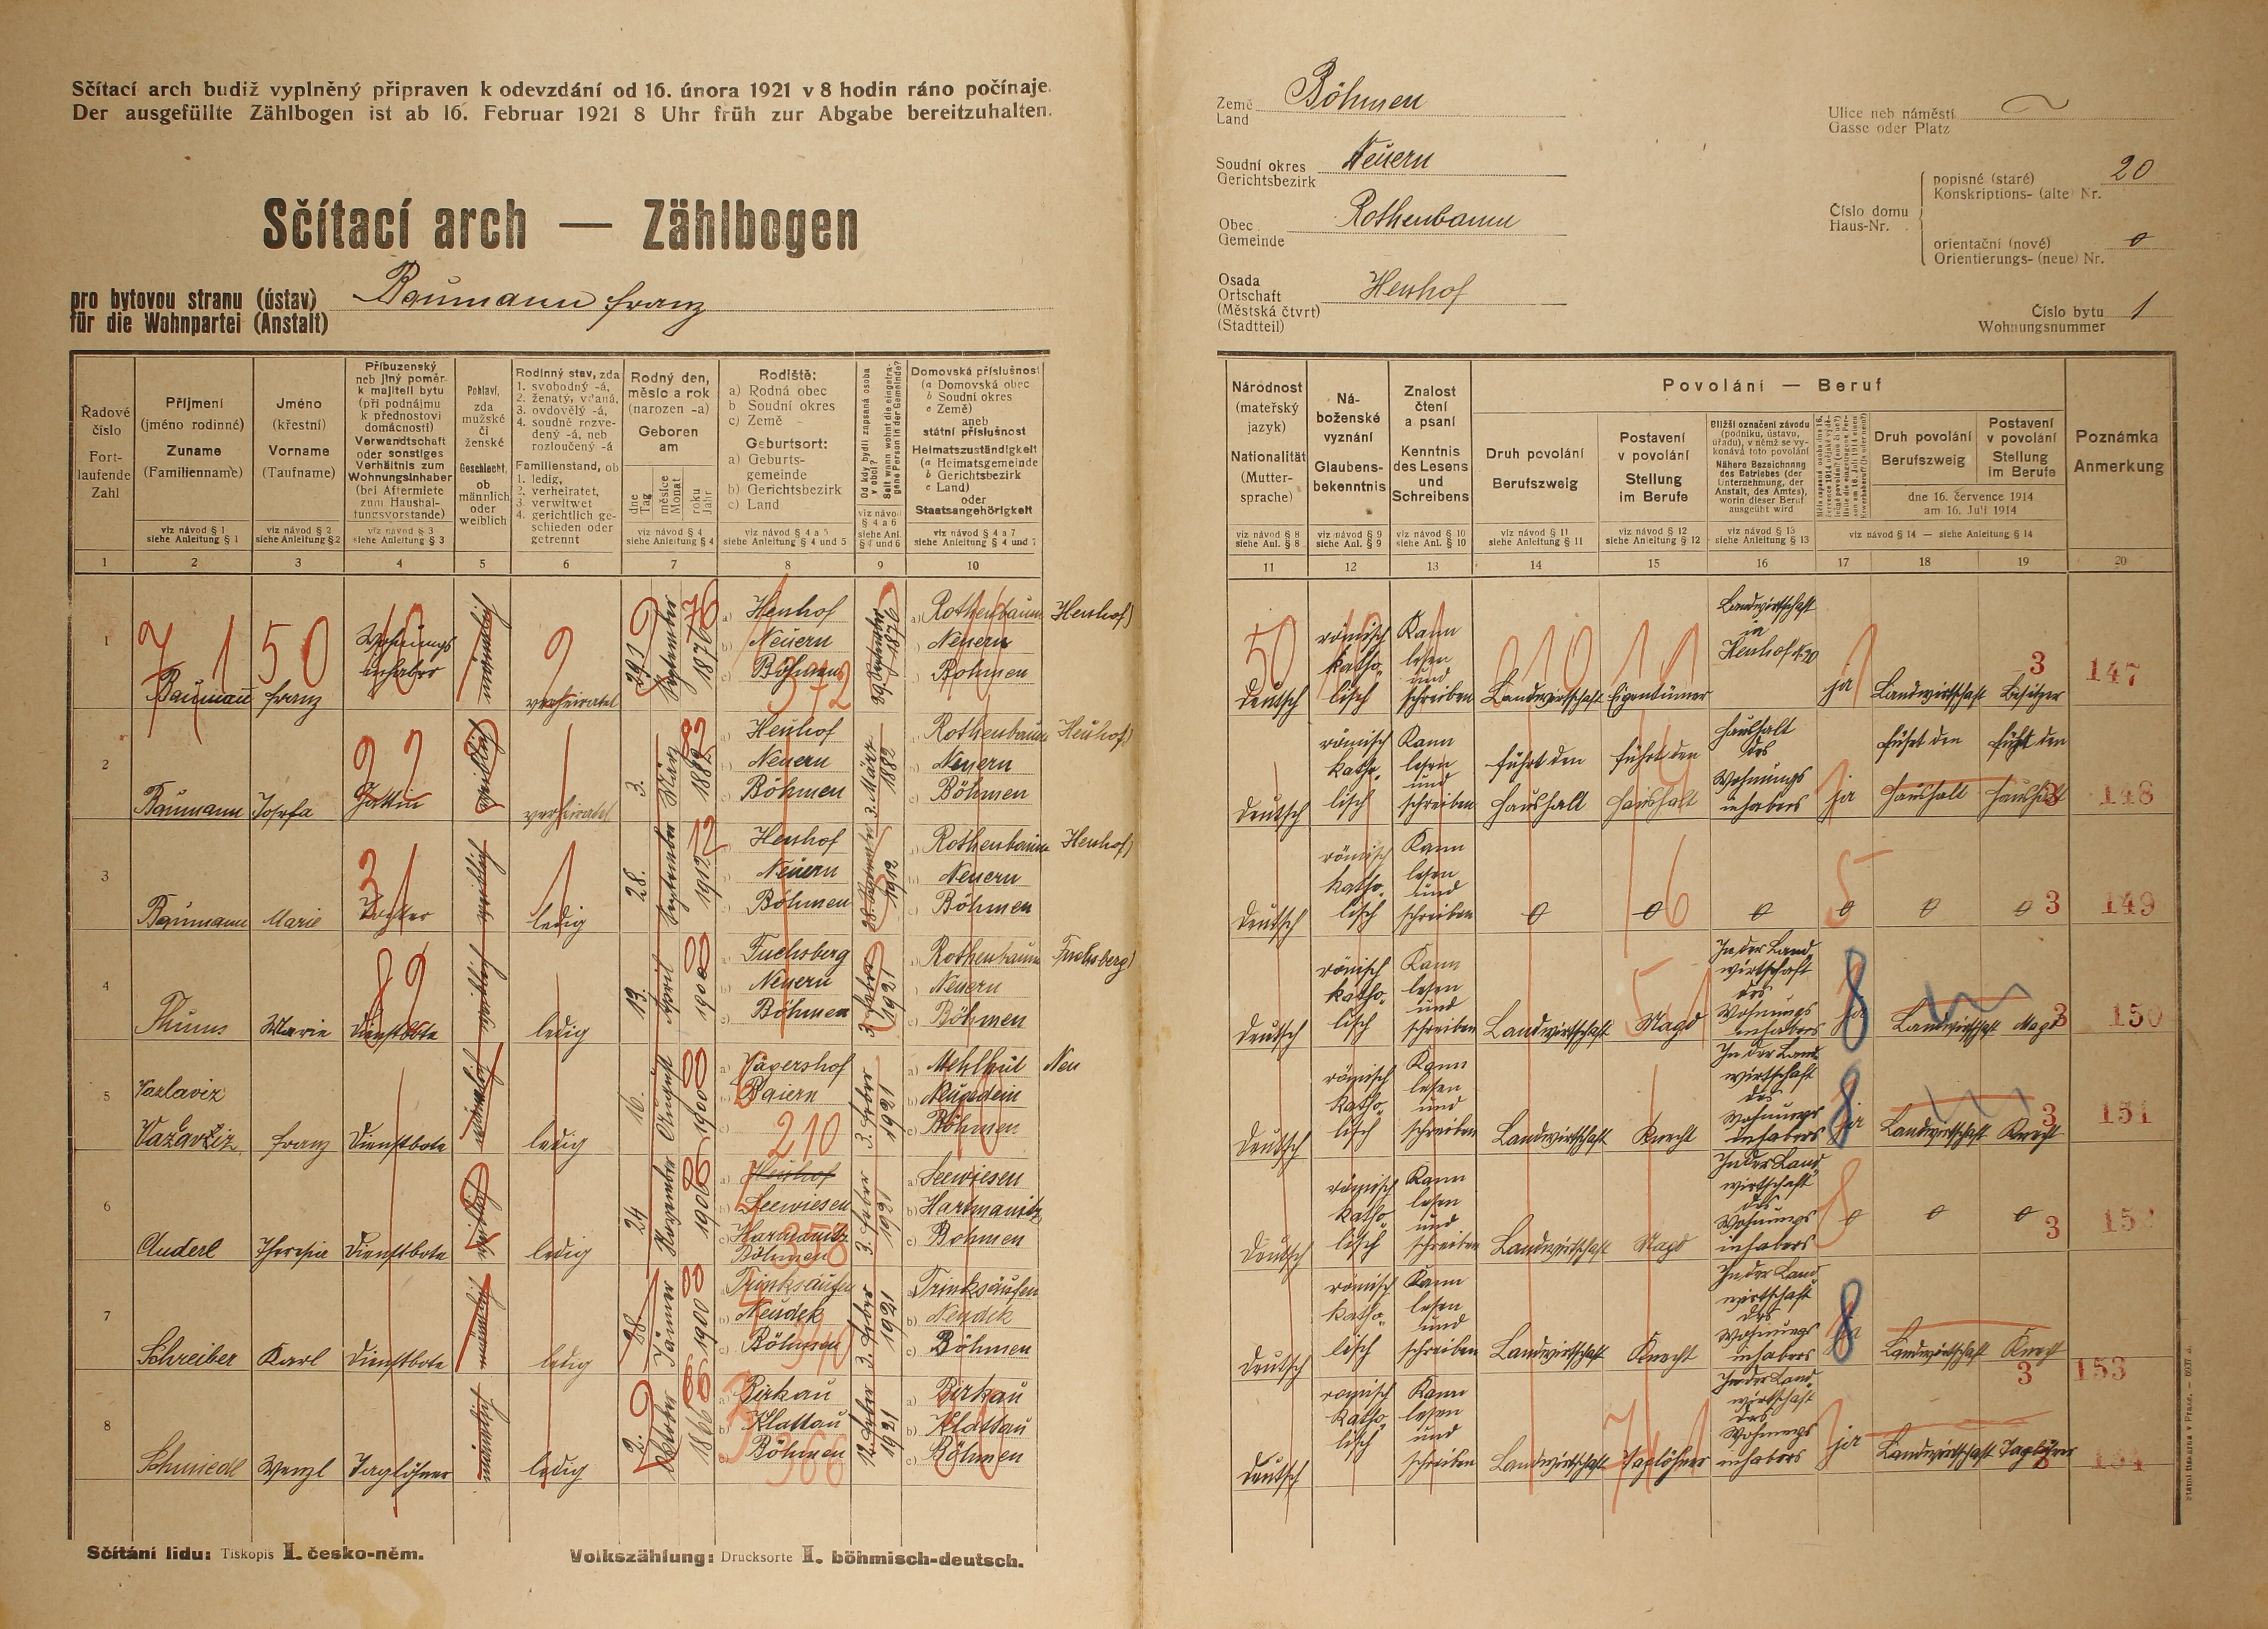 Sčítací arch budiž vyplněný připraven k odevzdání od 16. února 1921 v 8 hodin ráno počínaje.
Der ausgefüllte Zählbogen ist ab 16. Februar 1921 8 Uhr früh zur Abgabe bereitzuhalten.
Sčítací arch — Zählbogen
pro bytovou stranu (ústav)
für die Wohnpartei (Anstalt)
Baumann Franz
Země Böhmen
Land
Soudní okres Neuern
Gerichtsbezirk
Obec Rothenbaum
Gemeinde
Osada
Ortschaft Heuhof
(Městská čtvrt)
(Stadtteil)
Ulice neb náměstí
Gasse oder Platz
Číslo domu
Haus-Nr.
popisné (staré) 20
Konskriptions- (alte) Nr.
orientační (nové) 0
Orientierungs- (neue) Nr.
Číslo bytu 1
Wohnungsnummer
Řadové číslo
Fortlaufende Zahl
Příjmení
(jméno rodinné)
Zuname
(Familienname)
viz návod § 1
siehe Anleitung § 1
Jméno
(křestní)
Vorname
(Taufname)
viz návod § 2
siehe Anleitung § 2
Příbuzenský
neb jiný poměr
k majiteli bytu
(při podnájmu
k přednostovi
domácnosti)
Verwandtschaft
oder sonstiges
Verhältnis zum
Wohnungsinhaber
(bei Aftermiete
zum Haushal-
tungsvorstande)
viz návod § 3
siehe Anleitung § 3
Pohlaví,
zda
mužské
či
ženské
Geschlecht,
ob
männlich
oder
weiblich
Rodinný stav, zda
1. svobodný -á,
2. ženatý, vdaná,
3. ovdovělý -á,
4. soudně rozve-
dený -á, neb
rozloučený -á
Familienstand, ob
1. ledig,
2. verheiratet,
3. verwitwet
4. gerichtlich ge-
schieden oder
getrennt
Rodný den,
měsíc a rok
(narozen -a)
Geboren
am
dne Tag
měsíce Monat
roku Jahr
viz návod § 4
siehe Anleitung § 4
Rodiště:
a) Rodná obec
b) Soudní okres
c) Země
Geburtsort:
a) Geburts-
gemeinde
b) Gerichtsbezirk
c) Land
viz návod § 4 a 5
siehe Anleitung § 4 und 5
Od kdy bydlí zapsaná osoba v obci?
Seit wann wohnt die eingetragene Person in der Gemeinde?
viz návod
§ 4 a 6
siehe Anl.
§ 4 und 6
Domovská příslušnost
(a Domovská obec
b Soudní okres
c Země)
aneb
státní příslušnost
Heimatszuständigkeit
(a Heimatsgemeinde
b Gerichtsbezirk
c Land)
oder
Staatsangehörigkeit
viz návod § 4 a 7
siehe Anleitung § 4 und 7
Národnost
(mateřský
jazyk)
Nationalität
(Mutter-
sprache)
viz návod § 8
siehe Anl. § 8
Ná-
boženské
vyznání
Glaubens-
bekenntnis
viz návod § 9
siehe Anl. § 9
Znalost
čtení
a psaní
Kenntnis
des Lesens
und
Schreibens
viz návod § 10
siehe Anl. § 10
Povolání — Beruf
Druh povolání
Berufszweig
viz návod § 11
siehe Anleitung § 11
Postavení
v povolání
Stellung
im Berufe
viz návod § 12
siehe Anleitung § 12
Bližší označení závodu
(podniku, ústavu,
úřadu), v němž se vy-
konává toto povolání
Nähere Bezeichnung
des Betriebes (der
Unternehmung, der
Anstalt, des Amtes),
worin dieser Beruf
ausgeübt wird
viz návod § 13
siehe Anleitung § 13
Druh povolání
Berufszweig
Postavení
v povolání
Stellung
im Berufe
dne 16. července 1914
am 16. Juli 1914
viz návod § 14 — siehe Anleitung § 14
Poznámka
Anmerkung
1 2 3 4 5 6 7 8 9 10 11 12 13 14 15 16 17 18 19 20
1 Baumann Franz Wohnungsinhaber männlich verheiratet 29 September 1876
a) Heuhof b) Neuern c) Böhmen
29. September 1876
a) Rothenbaum Heuhof) b) Neuern c) Böhmen
deutsch römisch katholisch Kann lesen und schreiben Landwirtschaft Eigentümer Landwirtschaft in Heuhof N. 20 ja Landwirtschaft Besitzer 3 147
2 Baumann Josefa Gattin weiblich verheiratet 3. März 1882
Heuhof Neuern Böhmen
3. März 1882
Rothenbaum Heuhof) Neuern Böhmen
deutsch römisch katholisch Kann lesen und schreiben führt den Haushalt führt den Haushalt Haushalt des Wohnungsinhabers ja führt den Haushalt führt den Haushalt 3 148
3 Baumann Marie Tochter weiblich ledig 28. September 1912
Heuhof Neuern Böhmen
28. September 1912
Rothenbaum Heuhof) Neuern Böhmen
deutsch römisch katholisch Kann lesen und schreiben 0 0 0 0 0 0 3 149
4 Thums Marie Dienstbote weiblich ledig 13. April 1900
Fuchsberg Neuern Böhmen
3. Feber 1921
Rothenbaum Fuchsberg) Neuern Böhmen
deutsch römisch katholisch Kann lesen und schreiben Landwirtschaft Magd In der Landwirtschaft des Wohnungsinhabers ja Landwirtschaft Magd 3 150
5 Vazlaviz Franz Dienstbote männlich ledig 16. August 1900
Jägershof Baiern
3. Feber 1921
a) Mehlhüt Neu b) Neugedein c) Böhmen
deutsch römisch katholisch Kann lesen und schreiben Landwirtschaft Knecht In der Landwirtschaft des Wohnungsinhabers ja Landwirtschaft Knecht 3 151
6 Auderl Theresia Dienstbote weiblich ledig 24 November 1906
Heuhof Seewiesen Hartmanitz Böhmen
3. Feber 1921
a) Seewiesen b) Hartmanitz c) Böhmen
deutsch römisch katholisch Kann lesen und schreiben Landwirtschaft Magd In der Landwirtschaft des Wohnungsinhabers 0 0 0 3 152
7 Schreiber Karl Dienstbote männlich ledig 28 Jänner 1900
Trinksaifen Neudek Böhmen
3. Feber 1921
Trinksaifen b) Neudek c) Böhmen
deutsch römisch katholisch Kann lesen und schreiben Landwirtschaft Knecht In der Landwirtschaft des Wohnungsinhabers ja Landwirtschaft Knecht 3 153
8 Schmiedl Wenzl Taglöhner männlich ledig 2. Oktober 1866
Birkau Klattau Böhmen
12. Feber 1921
a) Birkau b) Klattau c) Böhmen
deutsch römisch katholisch Kann lesen und schreiben Landwirtschaft Taglöhner In der Landwirtschaft des Wohnungsinhabers ja Landwirtschaft Taglöhner 3 154
Sčítání lidu: Tiskopis I. česko-něm.
Volkszählung: Drucksorte I. böhmisch-deutsch.